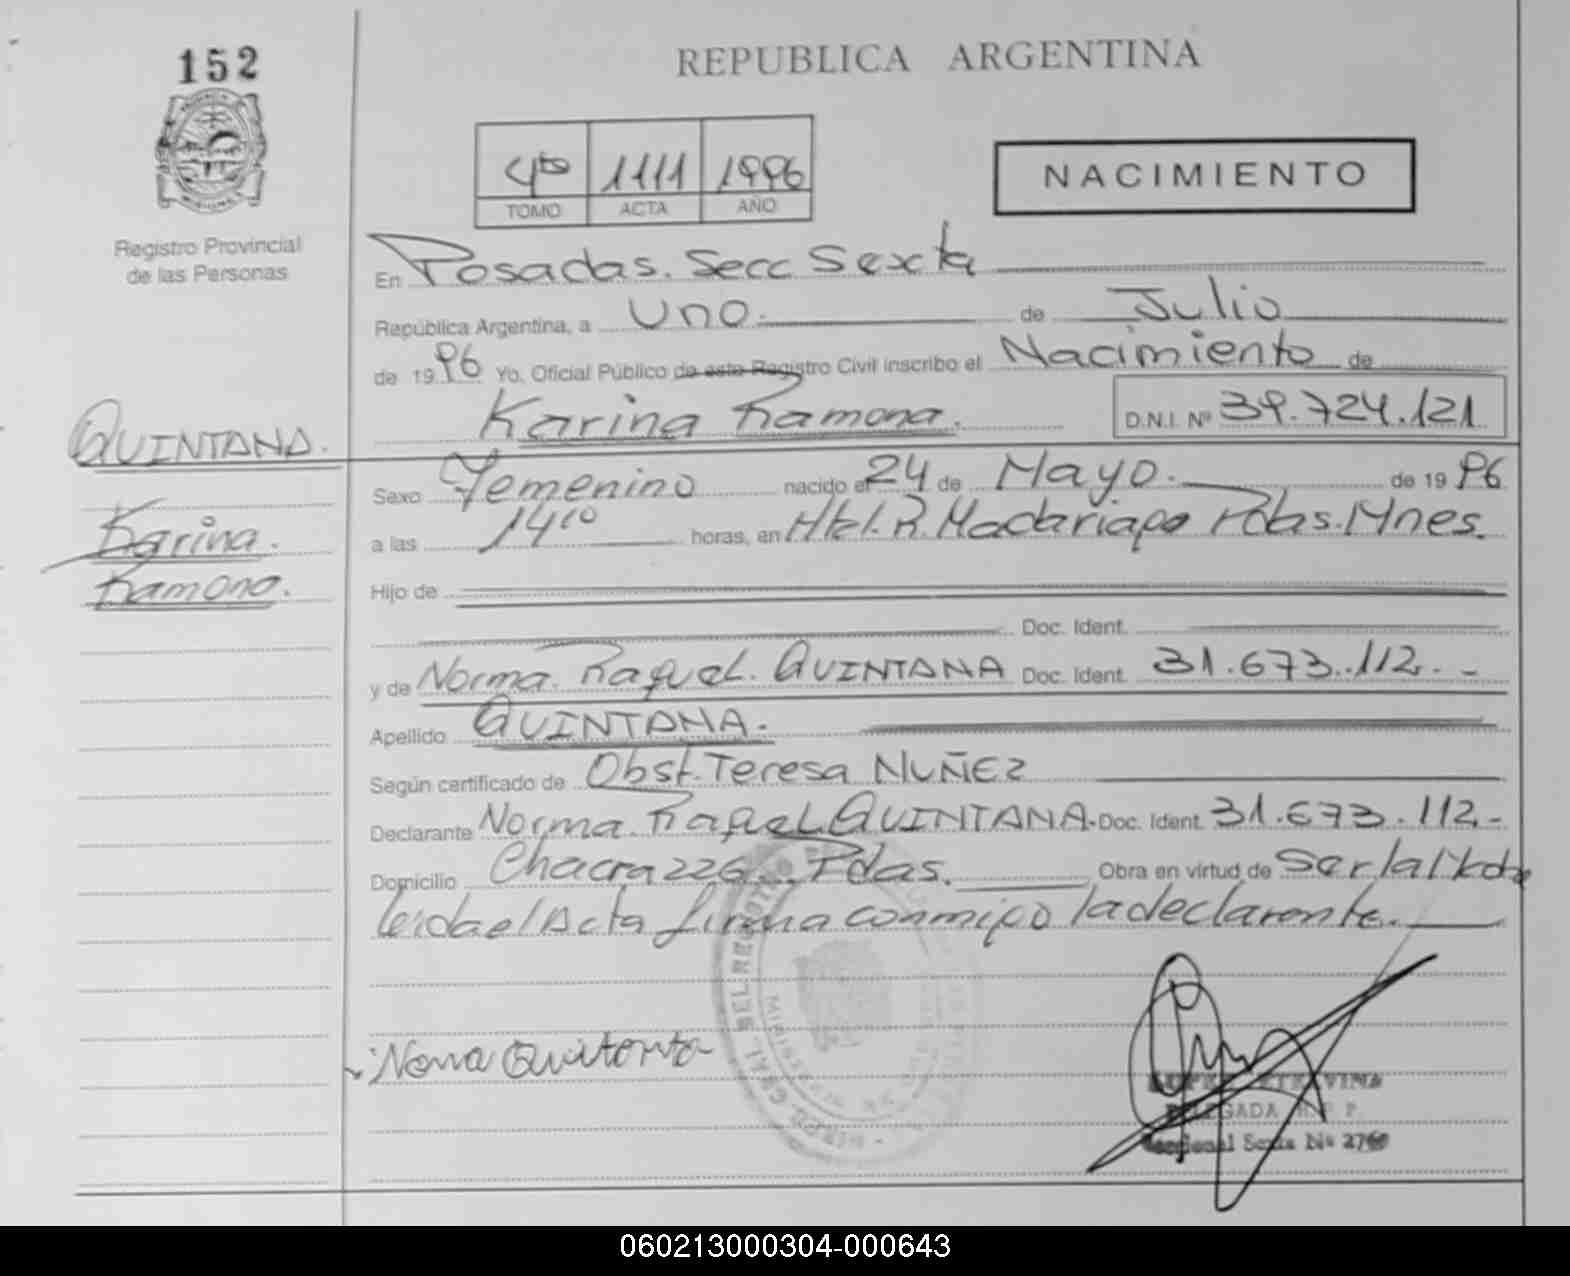 152
REPUBLICA ARGENTINA
4to 1111 1996
TOMO ACTA AÑO
NACIMIENTO
Registro Provincial
de las Personas
En Posadas. Secc Sexta
República Argentina, a Uno. de Julio
de 1996 Yo, Oficial Público de este Registro Civil inscribo el Nacimiento de
Karina Ramona. D.N.I. Nº 39.724.121
QUINTANA.
Karina.
Ramona.
Sexo Femenino nacido el 24 de Mayo. de 1996
a las 14 10 horas, en Htal. R. Madariaga Pdas. Mnes.
Hijo de
Doc. Ident.
y de Norma. Raquel. QUINTANA Doc. Ident. 31.673.112.-
Apellido QUINTANA.
Según certificado de Obst. Teresa NUÑEZ
Declarante Norma. Raquel QUINTANA. Doc. Ident. 31.673.112.-
Domicilio Chacra 226. Pdas. Obra en virtud de Ser la Mdre
leida el Acta firma conmigo la declarante.
DELEGADA R. P. P.
Seccional Sexta Nº
060213000304-000643